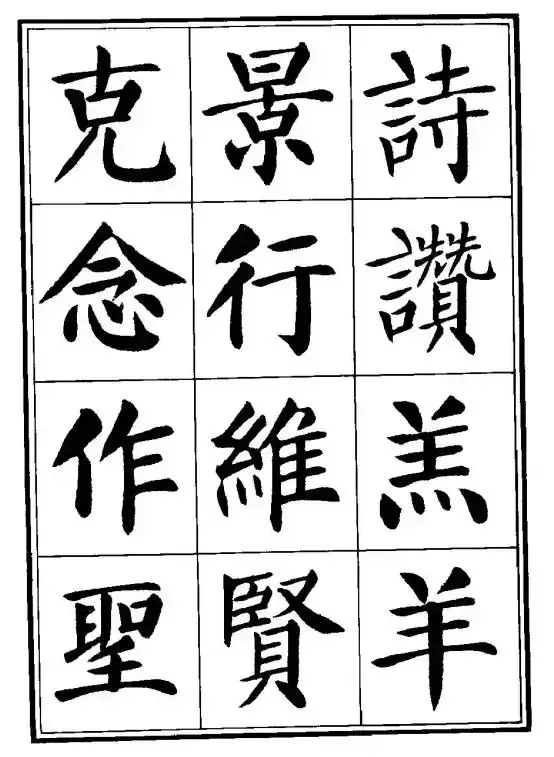 詩讚羔羊
景行維賢
克念作聖